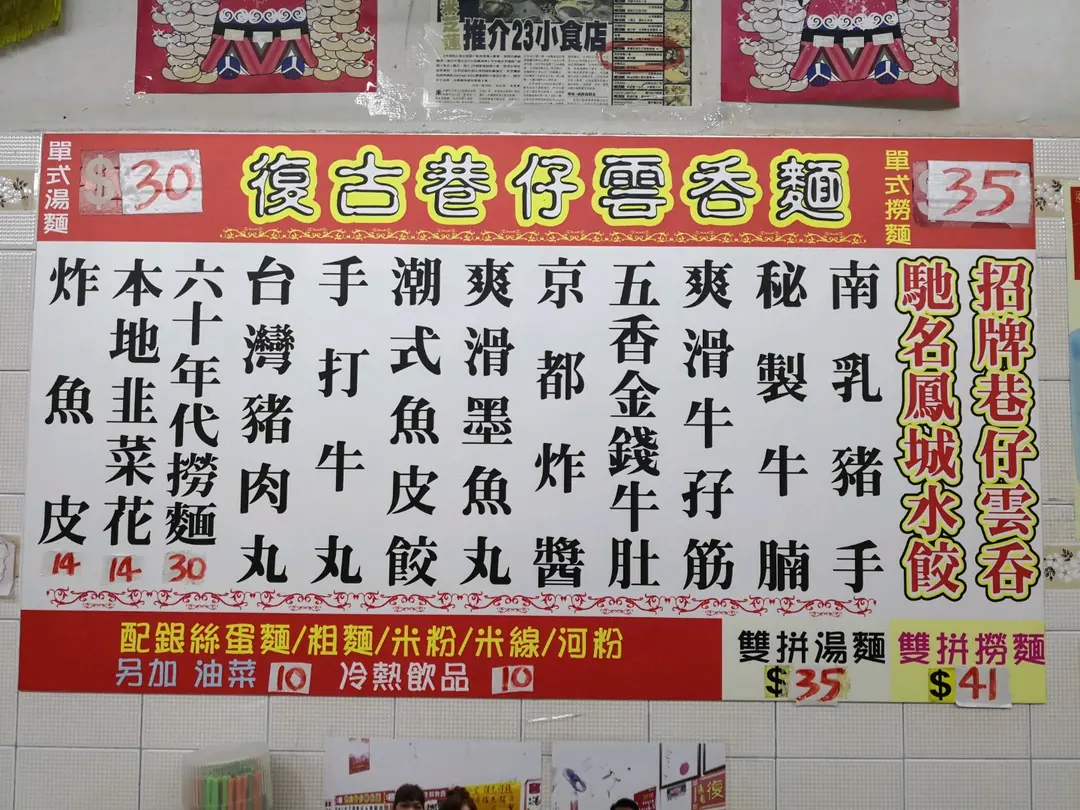 推介23小食店
單式湯麵
$30
復古巷仔雲吞麵
單式撈麵
35
招牌巷仔雲吞
馳名鳳城水餃
南乳豬手
秘製牛腩
爽滑牛孖筋
五香金錢牛肚
京都炸醬
爽滑墨魚丸
潮式魚皮餃
手打牛丸
台灣豬肉丸
六十年代撈麵 30
本地韭菜花 14
炸魚皮 14
配銀絲蛋麵/粗麵/米粉/米線/河粉
另加 油菜 10 冷熱飲品 10
雙拼湯麵
$35
雙拼撈麵
$41